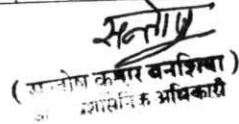 सन्तोष
( सन्तोष कुमार बनशिया )
प्रशासनिक अधिकारी